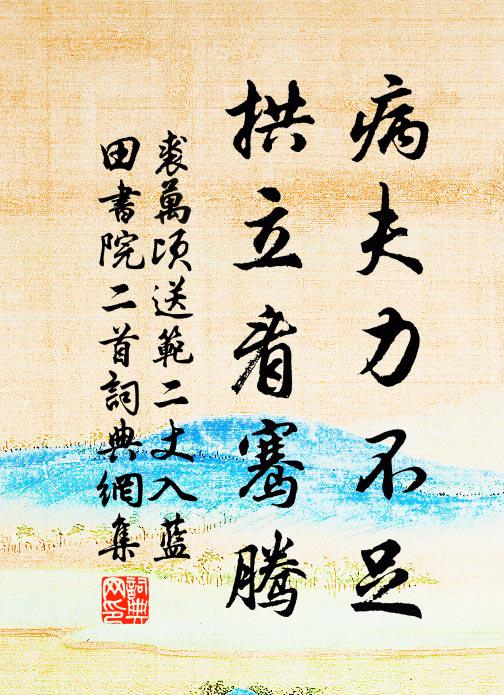 病夫力不足
拱立看骞騰
裘萬頃送範二丈入藍
田書院二首詞典網集
詞典